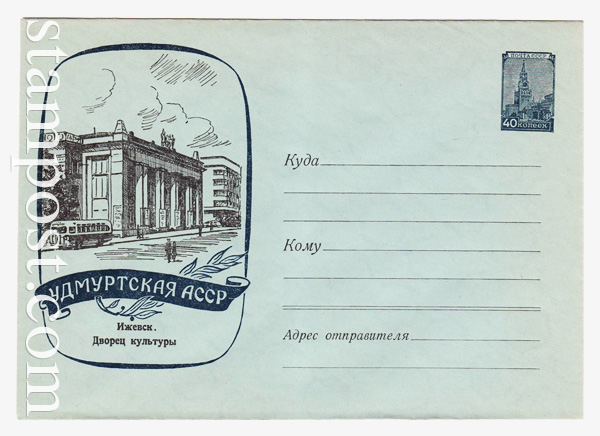 ПОЧТА СССР
40 КОПЕЕК
Куда
Кому
Адрес отправителя
УДМУРТСКАЯ АССР
Ижевск.
Дворец культуры
stampost.com